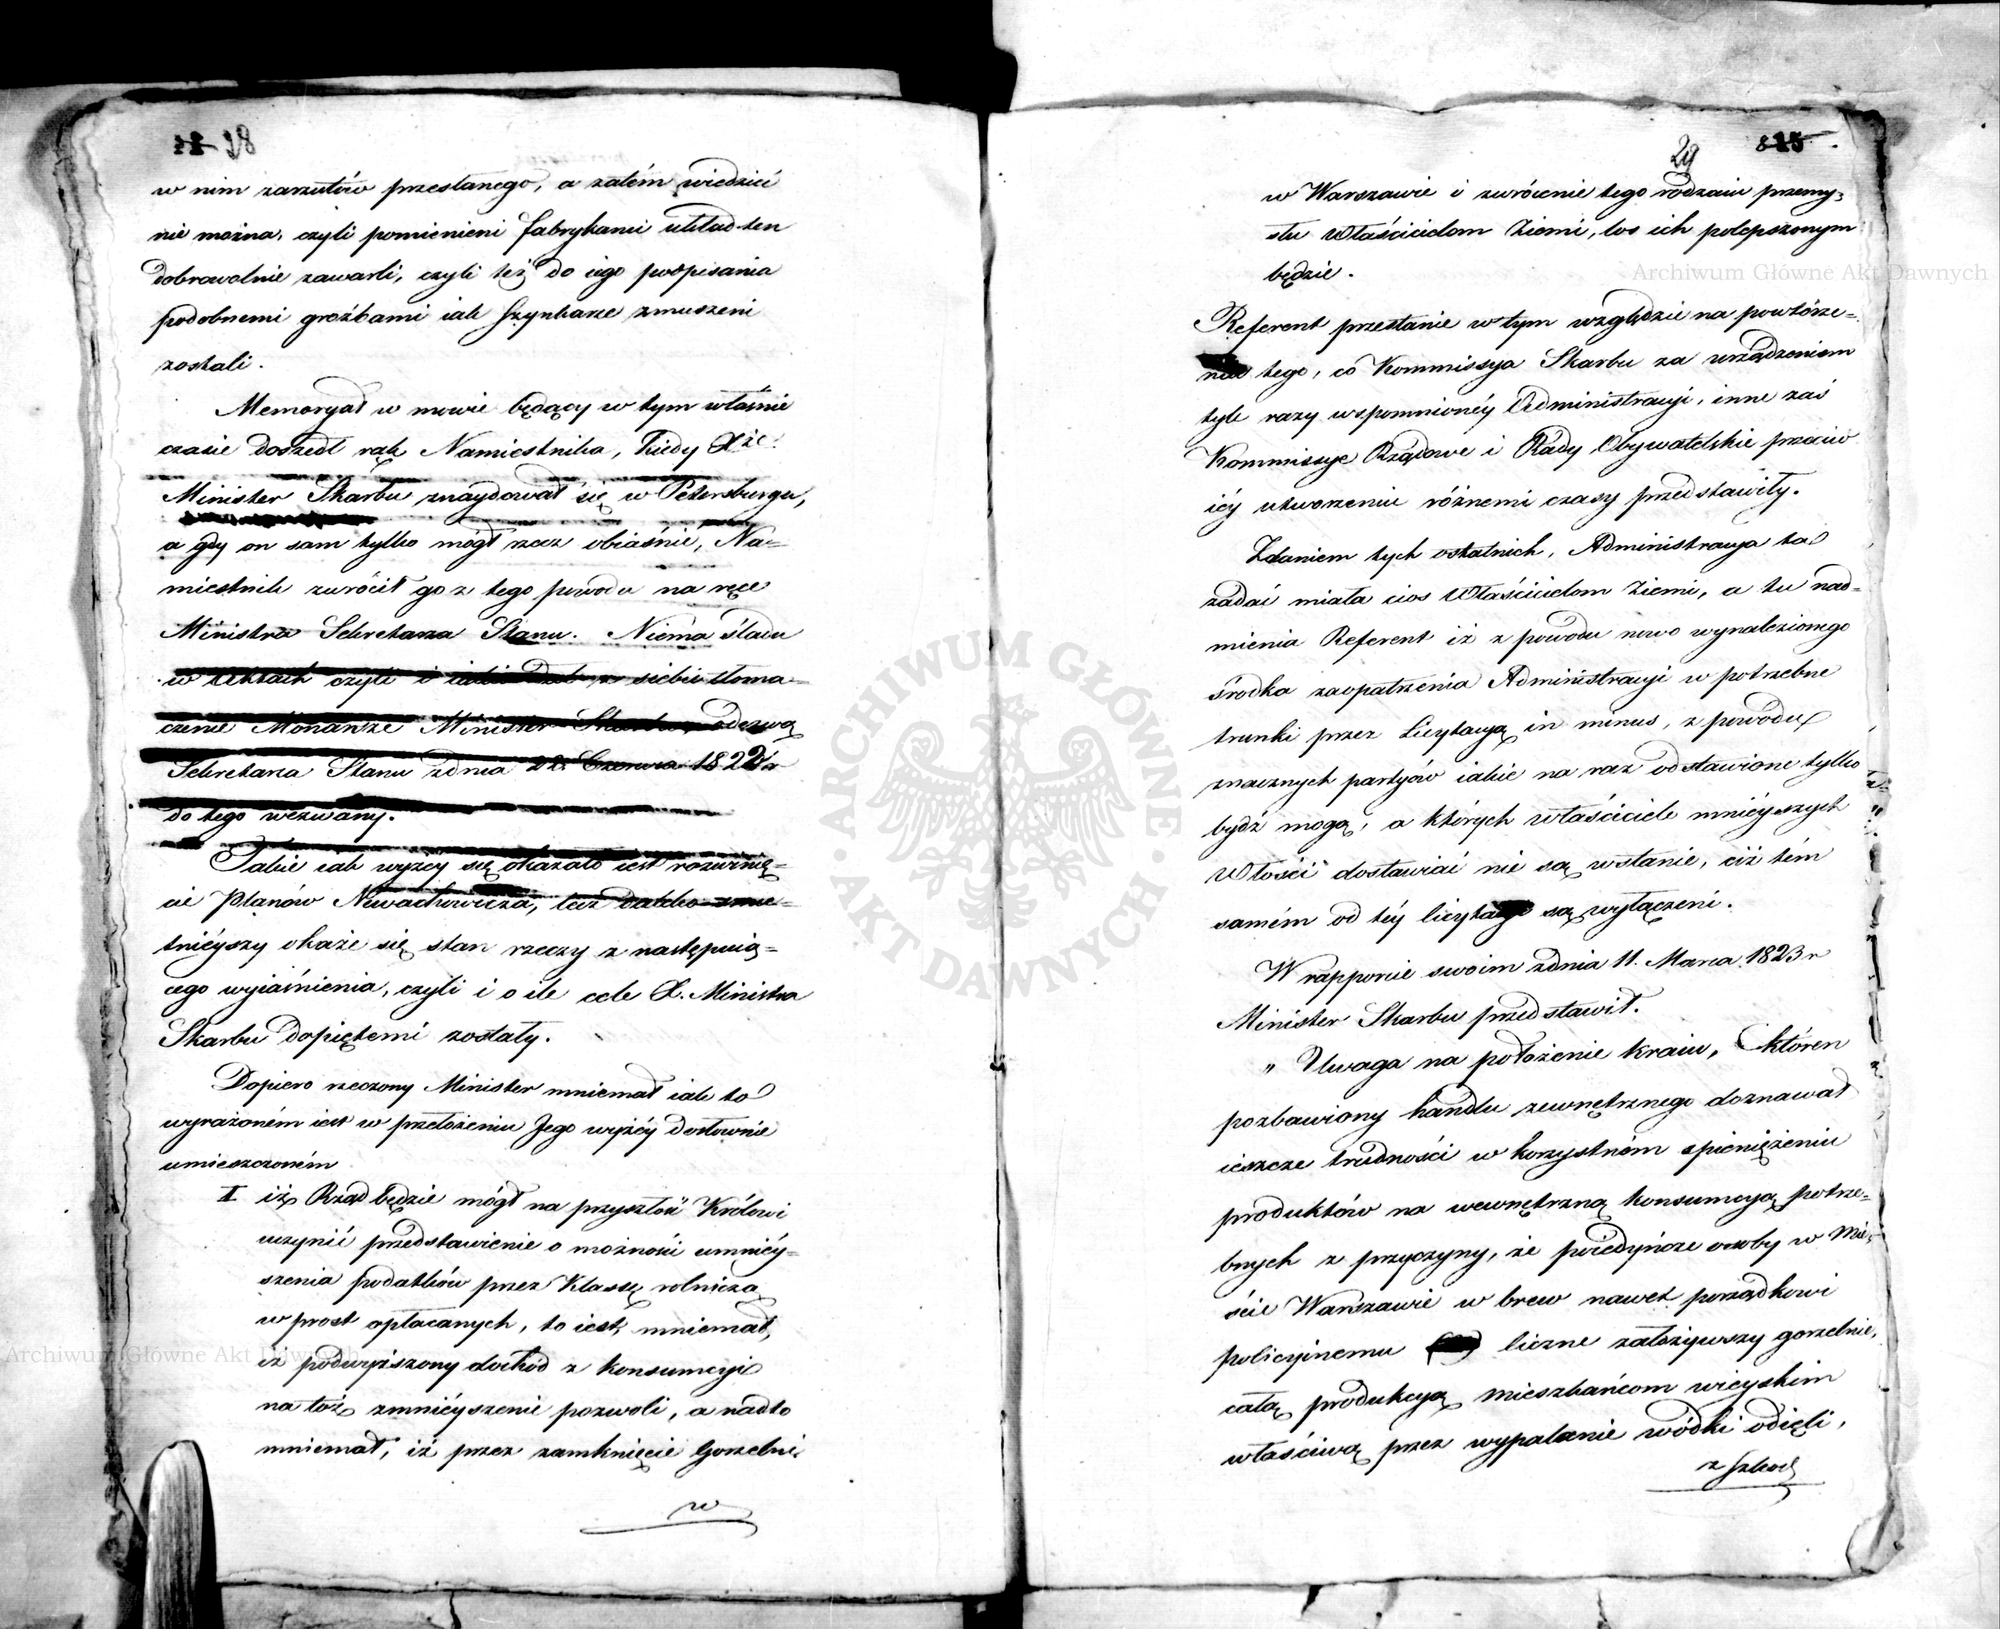 28
w nim zarzutów przesłanego, a zatém wiedzieć
nie można, czyli pomienieni fabrykanci układ ten
dobrowolnie zawarli, czyli też do iego podpisania
podobnemi groźbami iak szynkarze zmuszeni
zostali.
Memoryał w mowie będący w tym właśnie
czasie doszedł rąk Namiestnika, kiedy Xże
Minister Skarbu znaydował się w Petersburgu,
a gdy on sam tylko mógł rzecz obiaśnić, Na=
miestnik zwrócił go z tego powodu na ręce
Ministra Sekretarza Stanu. Niema śladu
w Aktach czyli i iakie dał z siebie tłoma=
czenie Monarsze Minister Skarbu odezwą
Sekretarza Stanu z dnia 22 Czerwca 1822 r
do tego wezwany.
Takie iak wyżey się okazało iest rozwinię=
cie Planów Newachowicza, lecz daleko smu=
tnieyszy okaże się stan rzeczy z następuią=
cego wyiaśnienia, czyli i o ile cele X. Ministra
Skarbu dopiętemi zostały.
Dopiero rzeczony Minister mniemał iak to
wyrażoném iest w przełożeniu Jego wyżéy dosłownie
umieszczoném
I iż Rząd będzie mógł na przyszłość Królowi
uczynić przedstawienie o możności umniéy=
szenia podatków przez Klassę rolniczą
wprost opłacanych, to iest, mniemał,
iż podwyższony dochód z konsumcyi
na toż zmnieyszenie pozwoli, a nadto
mniemał, iż przez zamknięcie Gorzelni
w
29
w Warszawie i zwrócenie tego rodzaiu przemy=
słu Właścicielom Ziemi, los ich polepszonym
będzie.
Referent przestanie w tym względzie na powtórze=
niu tego, co Kommissya Skarbu za urządzeniem
tyle razy wspomnionéy Administracyi, inne zaś
Kommissye Rządowe i Rady Obywatelskie przeciw
iéy utworzeniu różnemi czasy przedstawiły.
Zdaniem tych ostatnich, Administracya ta
zadać miała cios Właścicielom Ziemi, a tu nad=
mienia Referent iż z powodu nowo wynalezionego
środka zaopatrzenia Administracyi w potrzebne
trunki przez Licytacyą in minus, z powodu
znacznych partyów iakie na raz odstawione tylko
bydź mogą, a których właściciele mniéyszych
Włości dostawiać nie są wstanie, ciż tém
samém od téy licytacyi są wyłączeni.
W rapporcie swoim z dnia 11. Marca 1823 r
Minister Skarbu przedstawił.
„ Uwaga na położenie kraiu, któren
pozbawiony handlu zewnętrznego doznawał
ieszcze trudności w korzystném spieniężeniu
produktów na wewnętrzną konsumcyą potrze=
bnych z przyczyny, że poiedyńcze osoby w Mie=
ście Warszawie w brew nawet porządkowi
policyinemu liczne założywszy gorzelnie,
całą produkcyą mieszkańcom wieyskim
właściwą przez wypalanie wódki odięli,
z szkodą
Archiwum Główne Akt Dawnych
Archiwum Główne Akt Dawnych
ARCHIWUM GŁÓWNE · AKT DAWNYCH ·